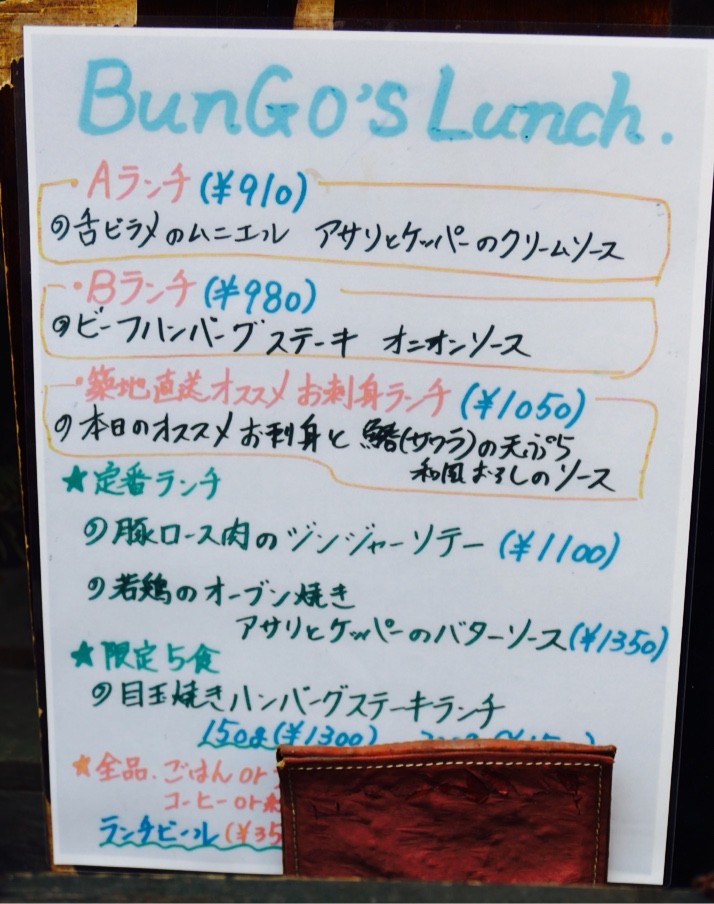 BunGo's Lunch.
・Aランチ (¥910)
の舌ビラメのムニエル アサリとケッパーのクリームソース
・Bランチ (¥980)
のビーフハンバーグステーキ オニオンソース
・築地直送オススメお刺身ランチ (¥1050)
の本日のオススメお刺身と鰆(サワラ)の天ぷら
和風おろしのソース
★定番ランチ
の豚ロース肉のジンジャーソテー (¥1100)
の若鶏のオーブン焼き
アサリとケッパーのバターソース(¥1350)
★限定5食
の目玉焼きハンバーグステーキランチ
150g(¥1300)
★全品、ごはん or
コーヒー or
ランチビール (¥35